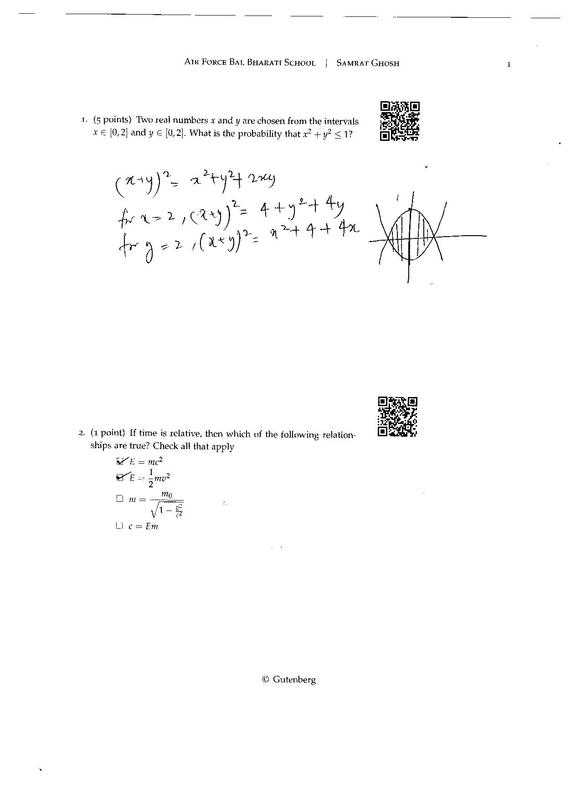 Air Force Bal Bharati School | Samrat Ghosh 1
1. (5 points) Two real numbers x and y are chosen from the intervals
x ∈ [0, 2] and y ∈ [0, 2]. What is the probability that x² + y² ≤ 1?
(x+y)² = x²+y²+2xy
for x = 2, (x+y)² = 4 + y² + 4y
for y = 2, (x+y)² = x² + 4 + 4x
2. (1 point) If time is relative, then which of the following relation-
ships are true? Check all that apply
☑ E = mc²
☑ E = 1/2 mv²
☐ m = m₀/√(1 − v²/c²)
☐ c = Em
© Gutenberg